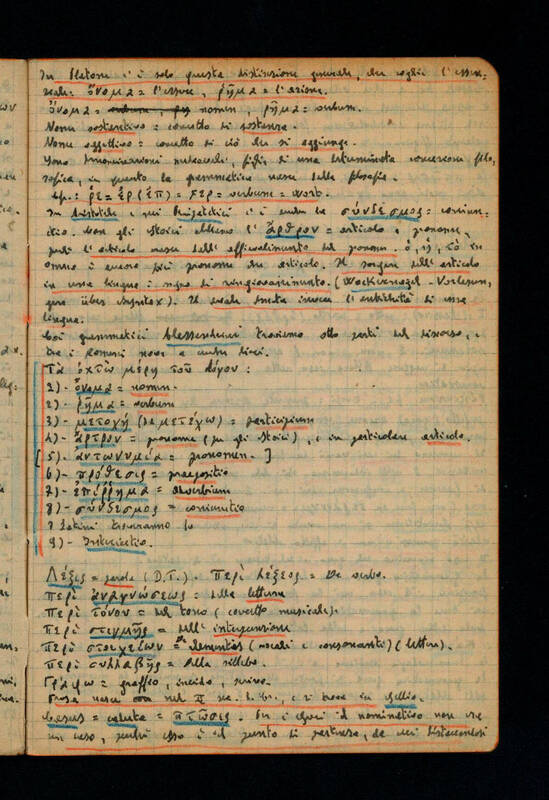 In Platone c'è solo questa distinzione generale, che coglie l'essen-
ziale: ὄνομα = l'essere, ῥῆμα = l'azione.
ὄνομα = nomen, ῥῆμα = verbum.
Nome sostantivo = concetto di sostanza.
Nome aggettivo = concetto di ciò che si aggiunge.
Sono denominazioni medievali, figlie di una determinata concezione filo-
sofica, in quanto la grammatica nasce dalla filosofia.
= verbum = word.
In Aristotele e nei Peripatetici c'è anche la σύνδεσμος = coniun-
ctio. Con gli Stoici abbiamo l'ἄρθρον = articolo e pronome,
l'articolo nasce dall'affievolimento del pronome. ὁ, ἡ, τό in
omero è ancora più pronome che articolo. Il sorgere dell'articolo
in una lingua è segno di ringiovanimento. (Wackernagel - Vorlesun-
gen über Syntax). Il duale invece l'antichità di una
lingua.
Coi grammatici alessandrini troviamo otto parti del discorso, e
tra i romani nove e anche dieci.
Τὰ ὀχτὼ μέρη τοῦ λόγου:
1)- ὄνομα = nomen
2)- ῥῆμα = verbum
3)- μετοχή (da μετέχω) = participium
4)- ἄρτρον = pronome (per gli Stoici), e in particolare articolo.
[5)- ἀντωνυμία = pronomen. ]
6)- πρόθεσις = praepositio
7)- ἐπίρρημα = adverbium
8)- σύνδεσμος = coniunctio
I Latini troveranno la
9)- Interiectio.
Λέξις = parola (D.T.). Περὶ λέξεος = De verbo.
Περὶ ἀναγνώσεως = della lettura
Περὶ τόνου = del tono (concetto musicale).
Περὶ στιγμῆς = dell'interpunzione
Περὶ στοιχείων = De elementis (vocali e consonanti) (lettere).
Περὶ συλλαβῆς = della sillaba.
Γράφω = graffio, incido, scrivo.
nel II sec. d. Cr., e si trova in Gellio.
Casus = caduta = πτῶσις. Per i Greci il nominativo non era
un caso, perché esso è il punto di partenza, da cui distaccandosi